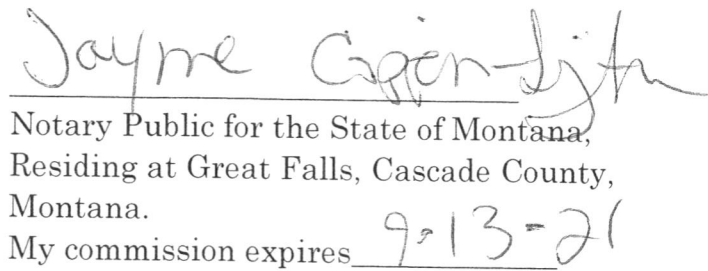 Jayme
Notary Public for the State of Montana,
Residing at Great Falls, Cascade County,
Montana.
My commission expires 9-13-21